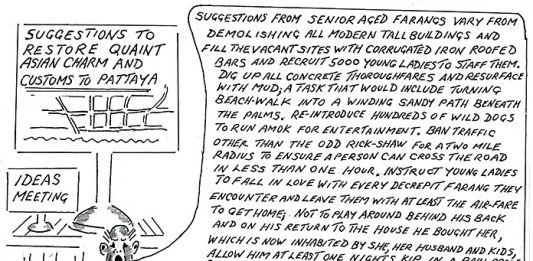 SUGGESTIONS TO
RESTORE QUAINT
ASIAN CHARM AND
CUSTOMS TO PATTAYA
IDEAS
MEETING
SUGGESTIONS FROM SENIOR AGED FARANGS VARY FROM
DEMOLISHING ALL MODERN TALL BUILDINGS AND
FILL THE VACANT SITES WITH CORRUGATED IRON ROOFED
BARS AND RECRUIT 5000 YOUNG LADIES TO STAFF THEM.
DIG UP ALL CONCRETE THOROUGHFARES AND RESURFACE
WITH MUD; A TASK THAT WOULD INCLUDE TURNING
BEACH-WALK INTO A WINDING SANDY PATH BENEATH
THE PALMS. RE-INTRODUCE HUNDREDS OF WILD DOGS
TO RUN AMOK FOR ENTERTAINMENT. BAN TRAFFIC
OTHER THAN THE ODD RICK-SHAW FOR A TWO MILE
RADIUS TO ENSURE A PERSON CAN CROSS THE ROAD
IN LESS THAN ONE HOUR. INSTRUCT YOUNG LADIES
TO FALL IN LOVE WITH EVERY DECREPIT FARANG THEY
ENCOUNTER AND LEAVE THEM WITH AT LEAST THE AIR-FARE
TO GET HOME; NOT TO PLAY AROUND BEHIND HIS BACK
AND ON HIS RETURN TO THE HOUSE HE BOUGHT HER,
WHICH IS NOW INHABITED BY SHE, HER HUSBAND AND KIDS,
ALLOW HIM AT LEAST ONE NIGHT'S KIP IN A